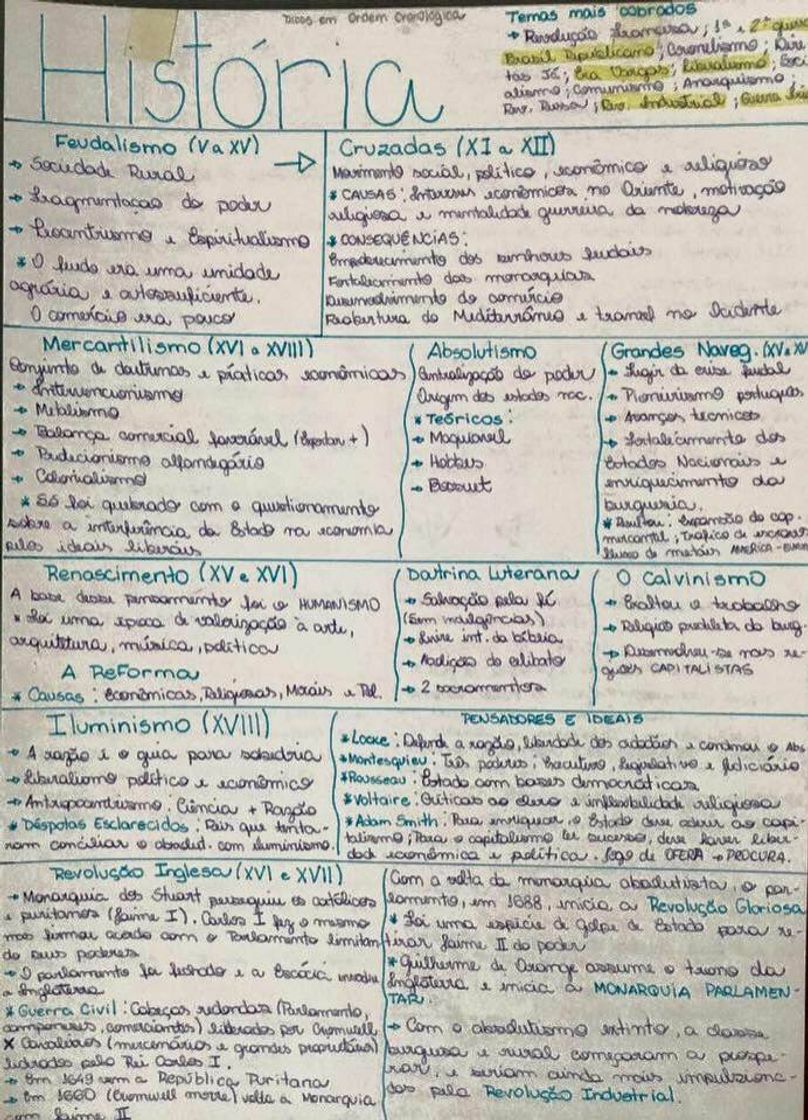 Dicas em Ordem Cronológica
História
Temas mais cobrados
→ Revolução Francesa; 1ª e 2ª guerra
Brasil Republicano; Coronelismo; Dire
tas Já; Era Vargas; Liberalismo; Soci
alismo; Comunismo; Anarquismo;
Rev. Russa; Rev. Industrial; Guerra Fria
Feudalismo (V a XV)
→ Sociedade Rural
→ Fragmentação do poder
→ Teocentrismo e Espiritualismo
* O feudo era uma unidade
agrária e autossuficiente.
O comércio era pouco
Cruzadas (XI a XII)
Movimento social, político, econômico e religioso
* CAUSAS: Interesses econômicos no Oriente, motivação
religiosa e mentalidade guerreira da nobreza
* CONSEQUÊNCIAS:
Empobrecimento dos senhores feudais
Fortalecimento das monarquias
Desenvolvimento do comércio
Reabertura do Mediterrâneo e transf no Ocidente
Mercantilismo (XVI a XVIII)
Conjunto de doutrinas e práticas econômicas
→ Intervencionismo
→ Metalismo
→ Balança comercial favorável (Exportar +)
→ Protecionismo alfandegário
→ Colonialismo
* Só foi quebrado com o questionamento
sobre a interferência do Estado na economia
pelos ideais liberais
Absolutismo
Centralização do poder
Origem dos estados nac.
* Teóricos:
→ Maquiavel
→ Hobbes
→ Bossuet
Grandes Naveg. (XV a XV
→ Fugir da crise feudal
→ Pioneirismo português
→ Avanços técnicos
→ Fortalecimento dos
Estados Nacionais e
enriquecimento da
burguesia.
* Resultou: expansão do cap.
mercantil; Tráfico de escravos
fluxo de metais AMERICA-EUROPA
Renascimento (XV e XVI)
A base desse pensamento foi o HUMANISMO
* Foi uma época de valorização à arte,
arquitetura, música, política
A Reforma
* Causas: Econômicas, Religiosas, Morais e Pol.
Doutrina Luterana
→ Salvação pela fé
(Sem indulgências)
→ Livre int. da bíblia
→ Abolição do celibato
→ 2 sacramentos
O Calvinismo
→ Exaltou o trabalho
→ Religião predileta da burg.
→ Desenvolveu-se nas re-
giões CAPITALISTAS
Iluminismo (XVIII)
→ A razão é o guia para sabedoria
→ Liberalismo político e econômico
→ Antropocentrismo, Ciência + Razão
* Déspotas Esclarecidos: Reis que tenta-
vam conciliar o absolut. com iluminismo.
PENSADORES E IDEAIS
* Locke: Defende a razão, liberdade dos cidadãos e condenou o Abs
* Montesquieu: Três poderes: Executivo, Legislativo e Judiciário
* Rousseau: Estado com bases democráticas
* Voltaire: Críticas ao clero e inflexibilidade religiosa
* Adam Smith: Para enriquecer, o Estado deve aderir ao capi-
talismo; Para o capitalismo ter sucesso, deve haver liber-
dade econômica e política. Jogo de OFERA → PROCURA.
Revolução Inglesa (XVI e XVII)
→ Monarquia dos Stuart perseguiu os católicos
e puritanos (Jaime I). Carlos I fez o mesmo
mas firmou acordo com o Parlamento limitan
do seus poderes
→ O parlamento foi fechado e a Escócia invadiu
a Inglaterra
* Guerra Civil: Cabeças redondas (Parlamento,
camponeses, comerciantes) liderados por Cromwell
X Cavaleiros (mercenários e grandes proprietários)
liderados pelo Rei Carlos I.
→ Em 1649 vem a República Puritana
→ Em 1660 (Cromwell morre) volta a Monarquia
com Jaime II
Com a volta da monarquia absolutista, o par-
lamento, em 1688, inicia a Revolução Gloriosa
* Foi uma espécie de golpe de Estado para re-
tirar Jaime II do poder
* Guilherme de Orange assume o trono da
Inglaterra e inicia a MONARQUIA PARLAMEN-
TAR.
→ Com o absolutismo extinto, a classe
burguesa e rural começaram a prospe-
rar, e seriam ainda mais impulsiona-
dos pela Revolução Industrial.